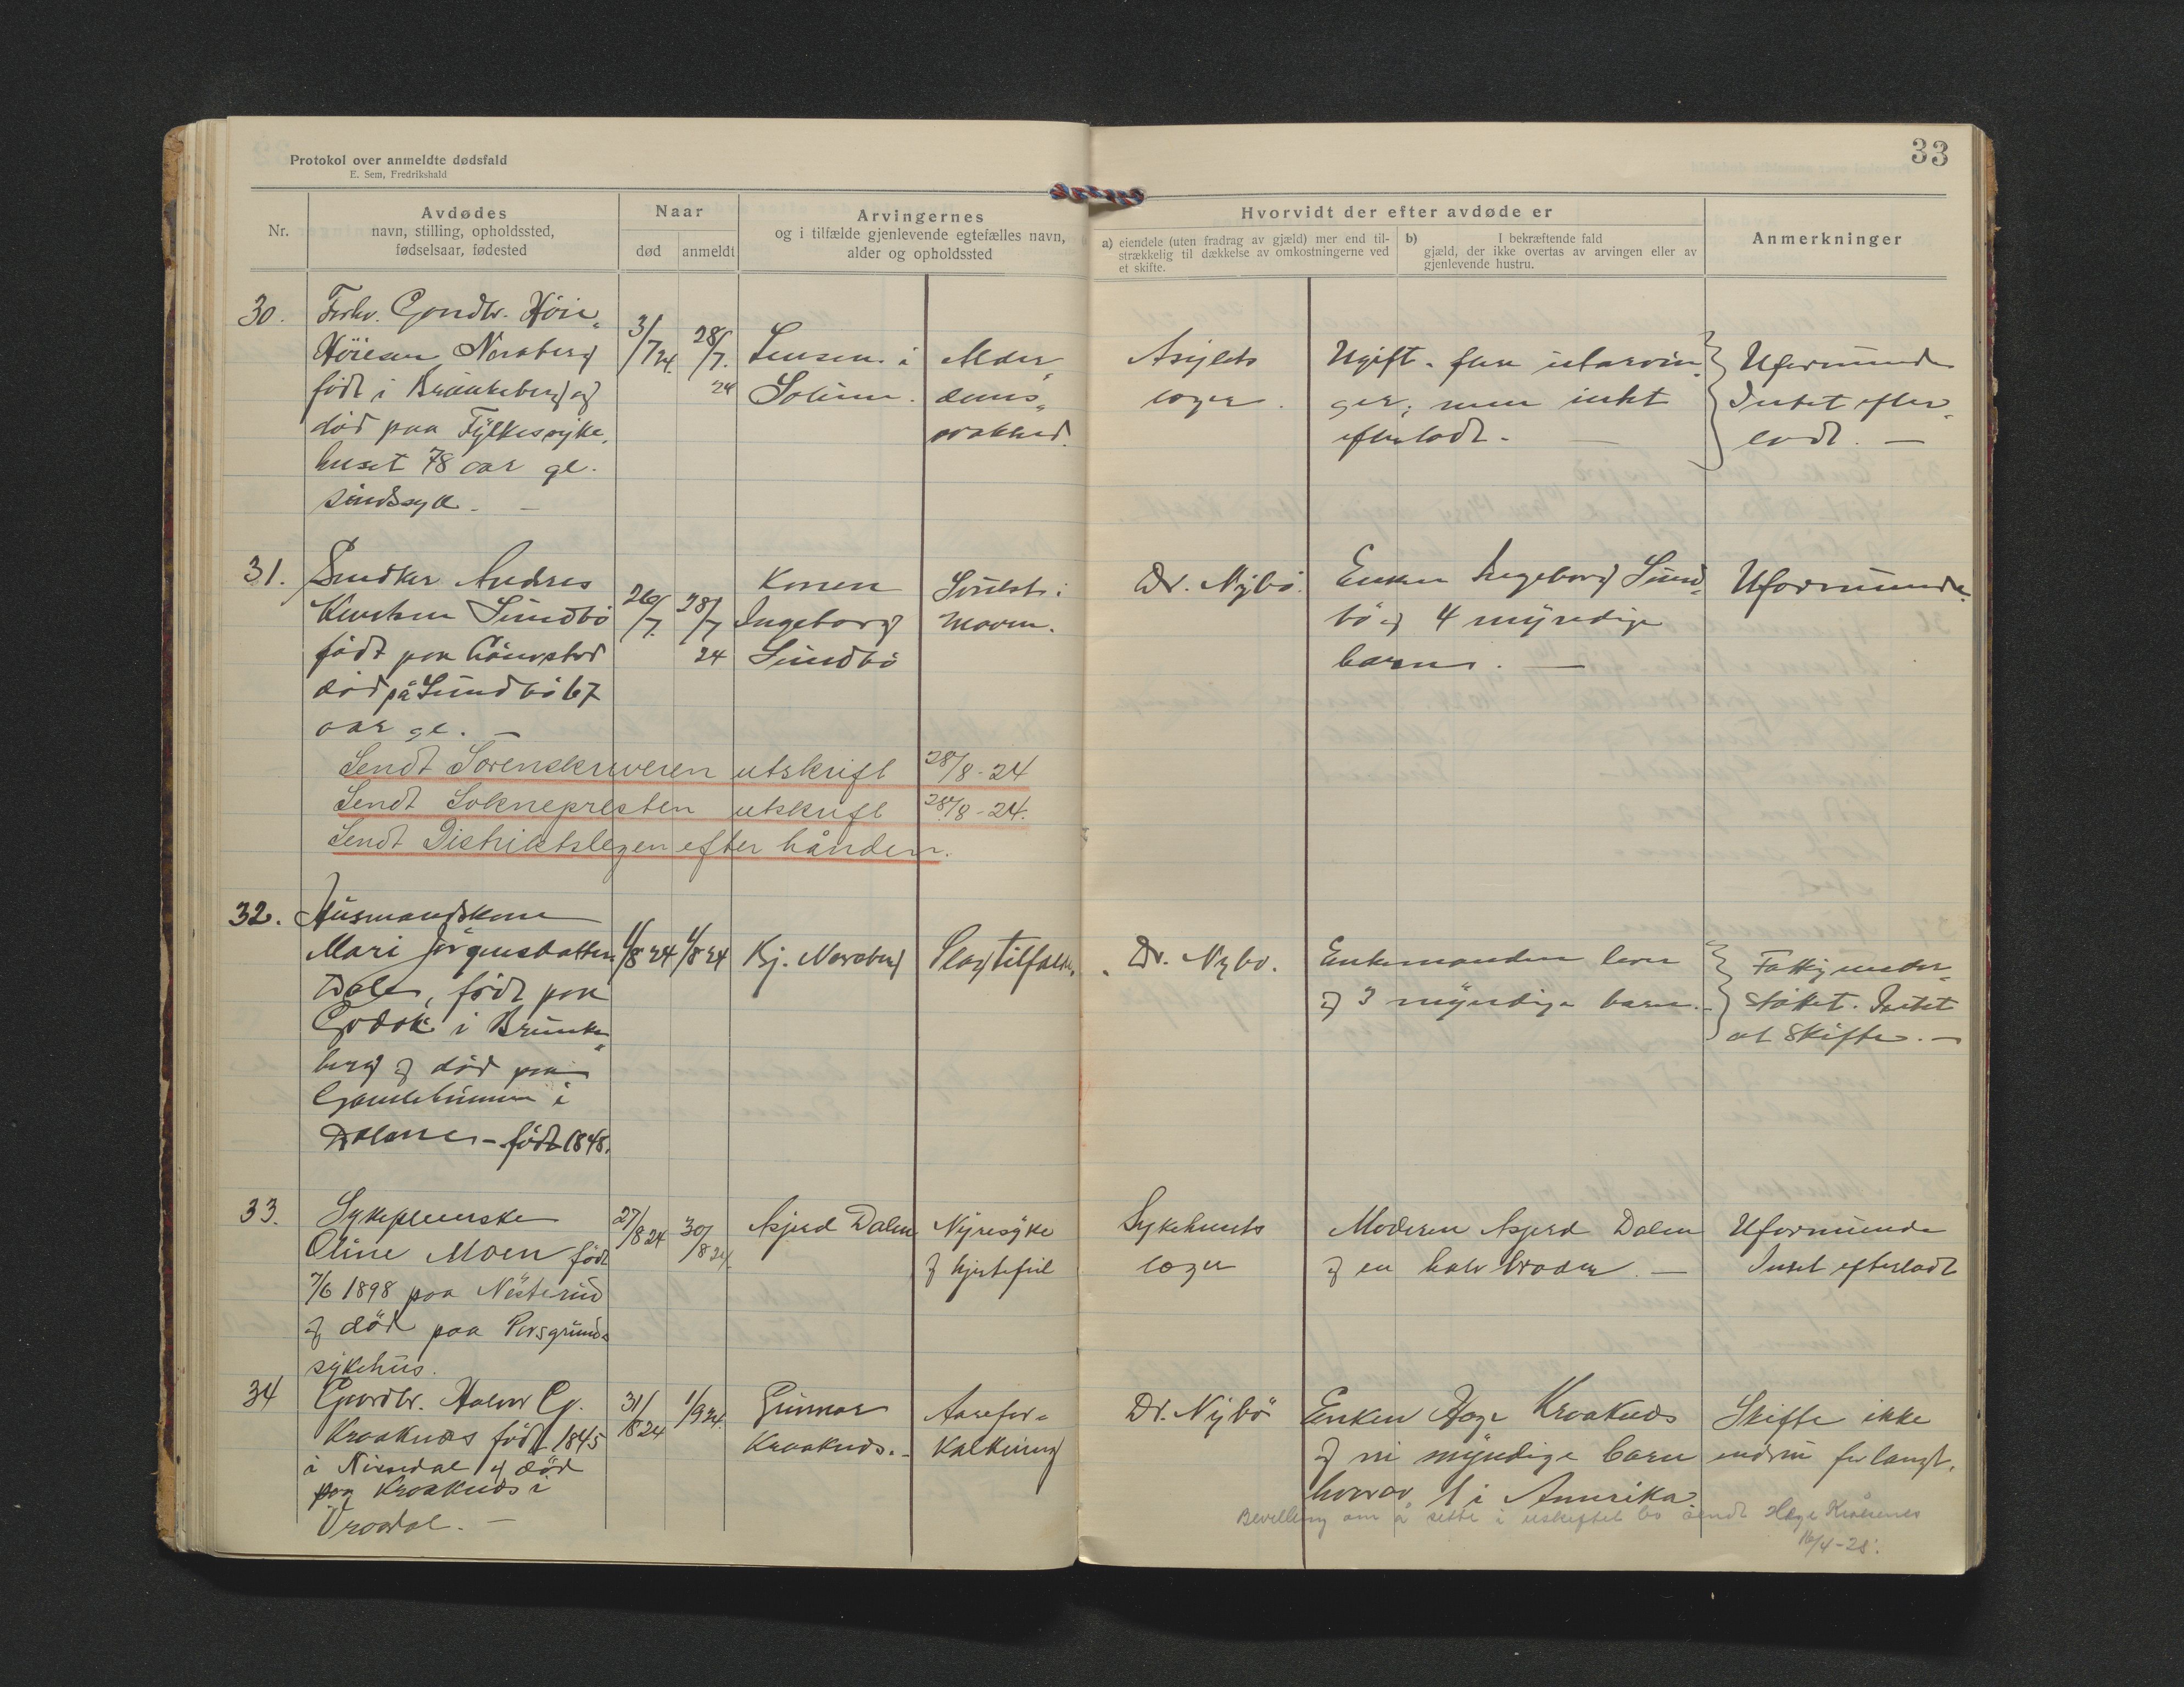 33
Protokol over anmeldte dødsfald
E. Sem, Fredrikshald
Nr.
Avdødes
navn, stilling, opholdssted,
fødselsaar, fødested
Naar
død
anmeldt
Arvingernes
og i tilfælde gjenlevende egtefælles navn,
alder og opholdssted
Hvorvidt der efter avdøde er
a) eiendele (uten fradrag av gjæld) mer end til-
strækkelig til dækkelse av omkostningerne ved
et skifte.
b) I bekræftende fald
gjæld, der ikke overtas av arvingen eller av
gjenlevende hustru.
Anmerkninger
30.
Forhv. Gaardbr. Høie
Høiesen Noraberg
født i Brunkeberg og
död paa Fylkessyke,
huset 78 aar gl.
sindssyk. -
3/7 24.
28/7. 24
i
Alder
doms
svakhed.
Asylets
læge.
Ugift.
ger; men intet
efterladt. -
Uformuende
Intet efter
ladt. -
31.
Anders
Sundbö
född paa
död på Sundbö 67
aar gl. -
26/7.
28/7 24
Konen
Ingeborg
Sundbö
i
maven.
Dr. Nybö.
Enken Ingeborg Sund
bö og 4 myndige
barn. -
Uformuende.
Sendt Sorenskriveren utskrift 28/8-24
Sendt Soknepresten utskrift 28/8-24.
Sendt Distriktslegen efter hånden.
32.
Husmandskone
Mari Jörgensdatter
Dalen, född paa
Godok i Brunke
berg og död paa
i
- född 1848.
1/8 24
4/8 24
Kj. Noraberg
Slagtilfælde.
Dr. Nybö.
Enkemanden lever
og 3 myndige barn. -
Fattigunder
støttet. Intet
at skifte. -
33.
Sykepleierske
Oline Moen född
7/6 1898 paa Nesterud
og död paa Porsgrunds
sykehus.
27/8 24
30/8 24.
Asjerd Dalen
Nyresyke
og hjertefeil
Sykehusets
læge
Moderen Asjerd Dalen
og en halv broder. -
Uformuende
Intet efterladt
34
Gaardbr. Halvor G.
Kraaknes född 1845
i Nissedal og död
paa Kraaknes i
Vraadal. -
31/8 24
1/9 24.
Gunnar
Kraaknes. -
Aarefor=
kalkning
Dr. Nybö
Enken Hæge Kraaknes
og ni myndige barn
hvorav 1 i Amerika.
Skifte ikke
endnu forlangt.
Bevilling om å sitte i uskiftet bo sendt Hæge Kråknes
16/4-28.